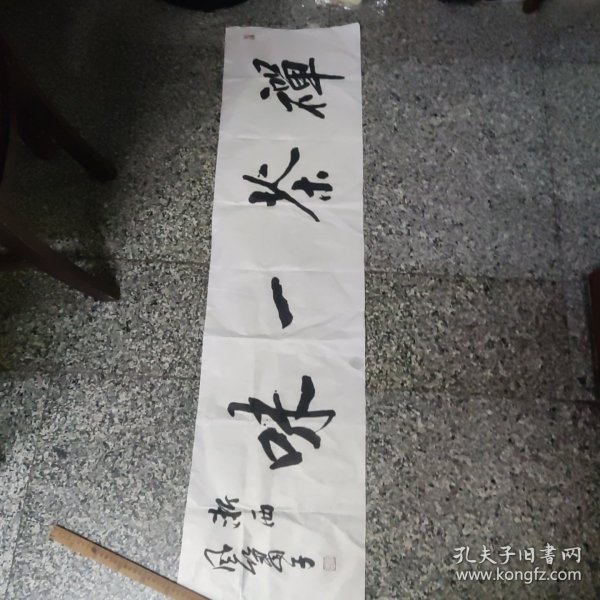 禅茶一味
孔夫子旧书网
www.kongfz.com